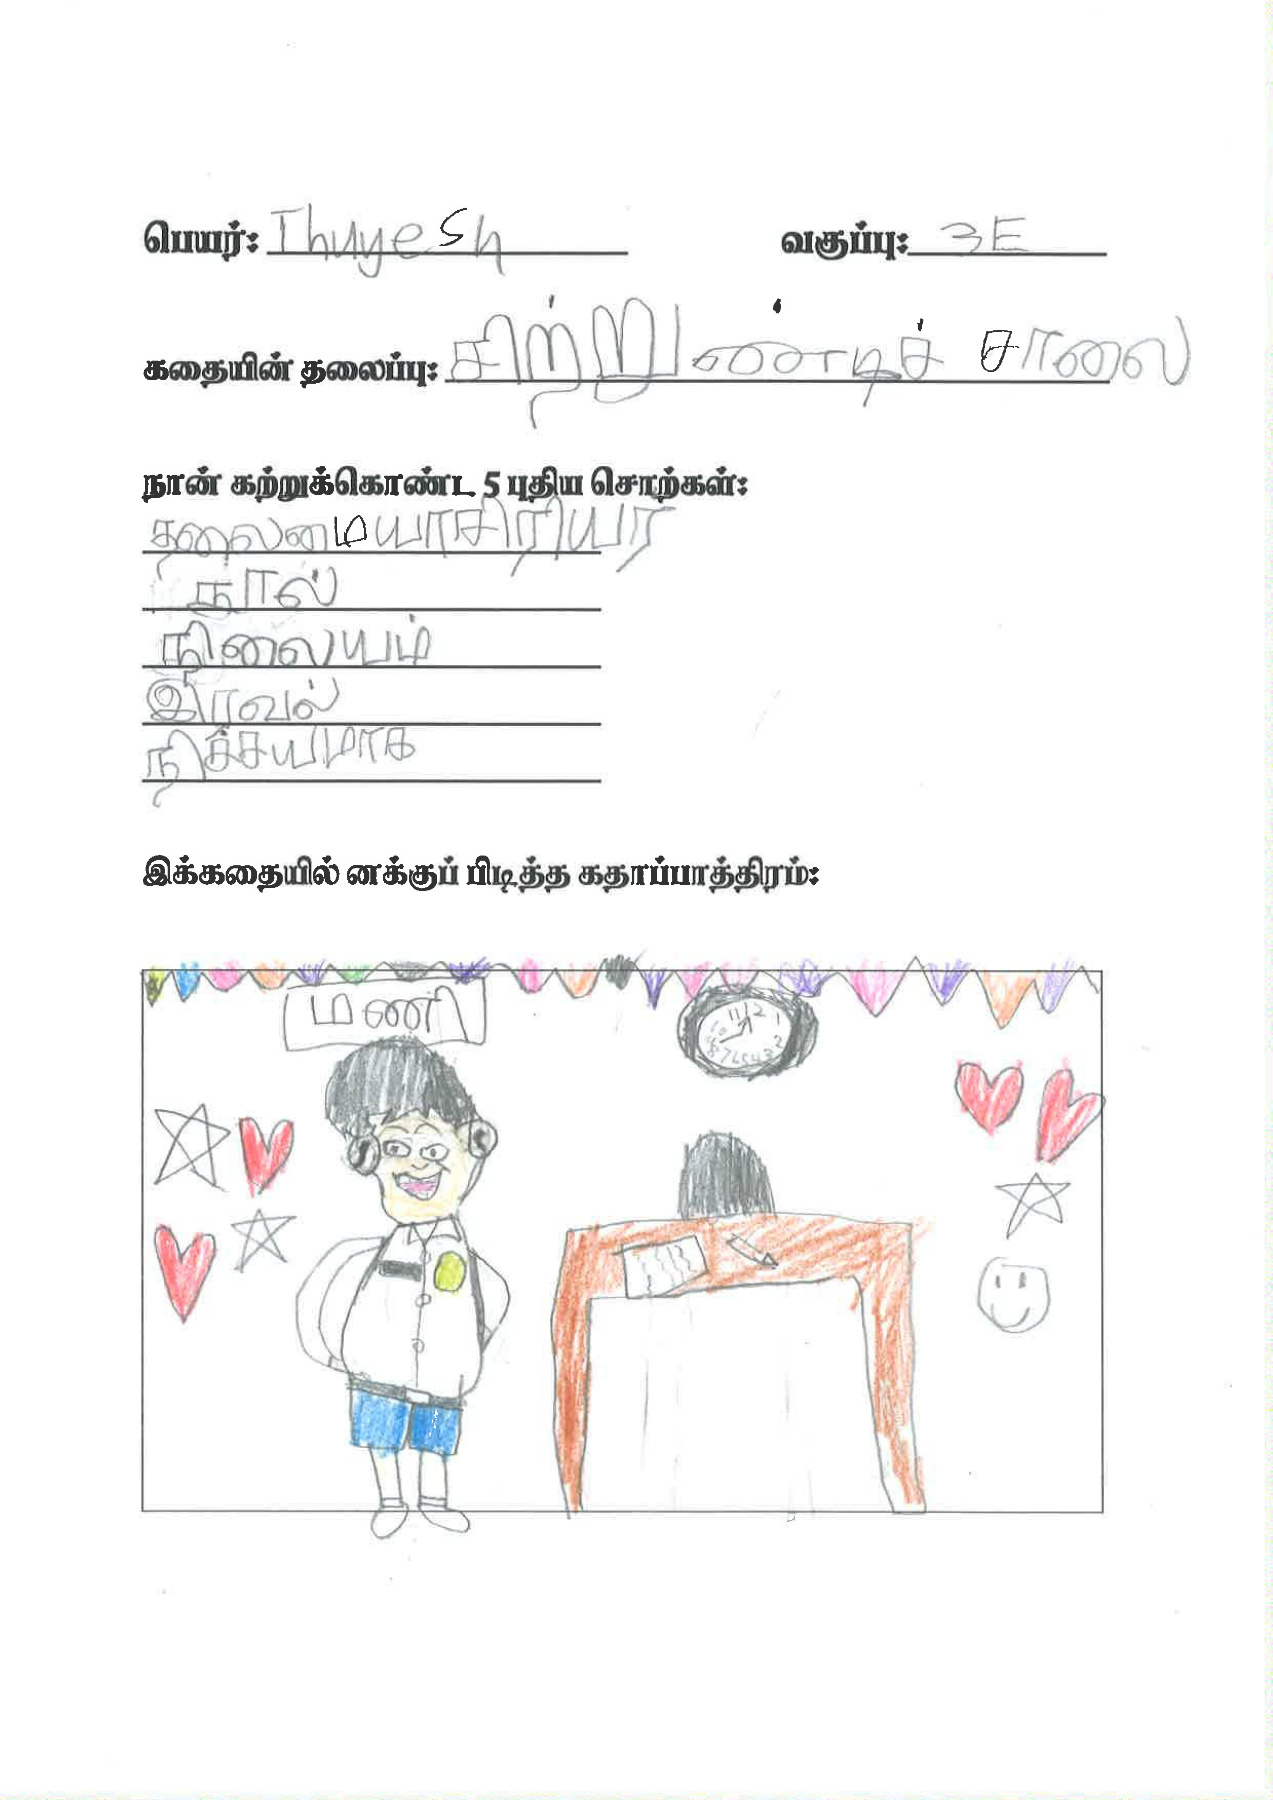 பெயர்: Thuyesh வகுப்பு: 3E
கதையின் தலைப்பு: சிற்றுண்டிச் சாலை
நான் கற்றுக்கொண்ட 5 புதிய சொற்கள்:
தலைமையாசிரியர்
நூல்
நிலையம்
இரவல்
நிச்சயமாக
இக்கதையில் னக்குப் பிடித்த கதாப்பாத்திரம்:
மணி